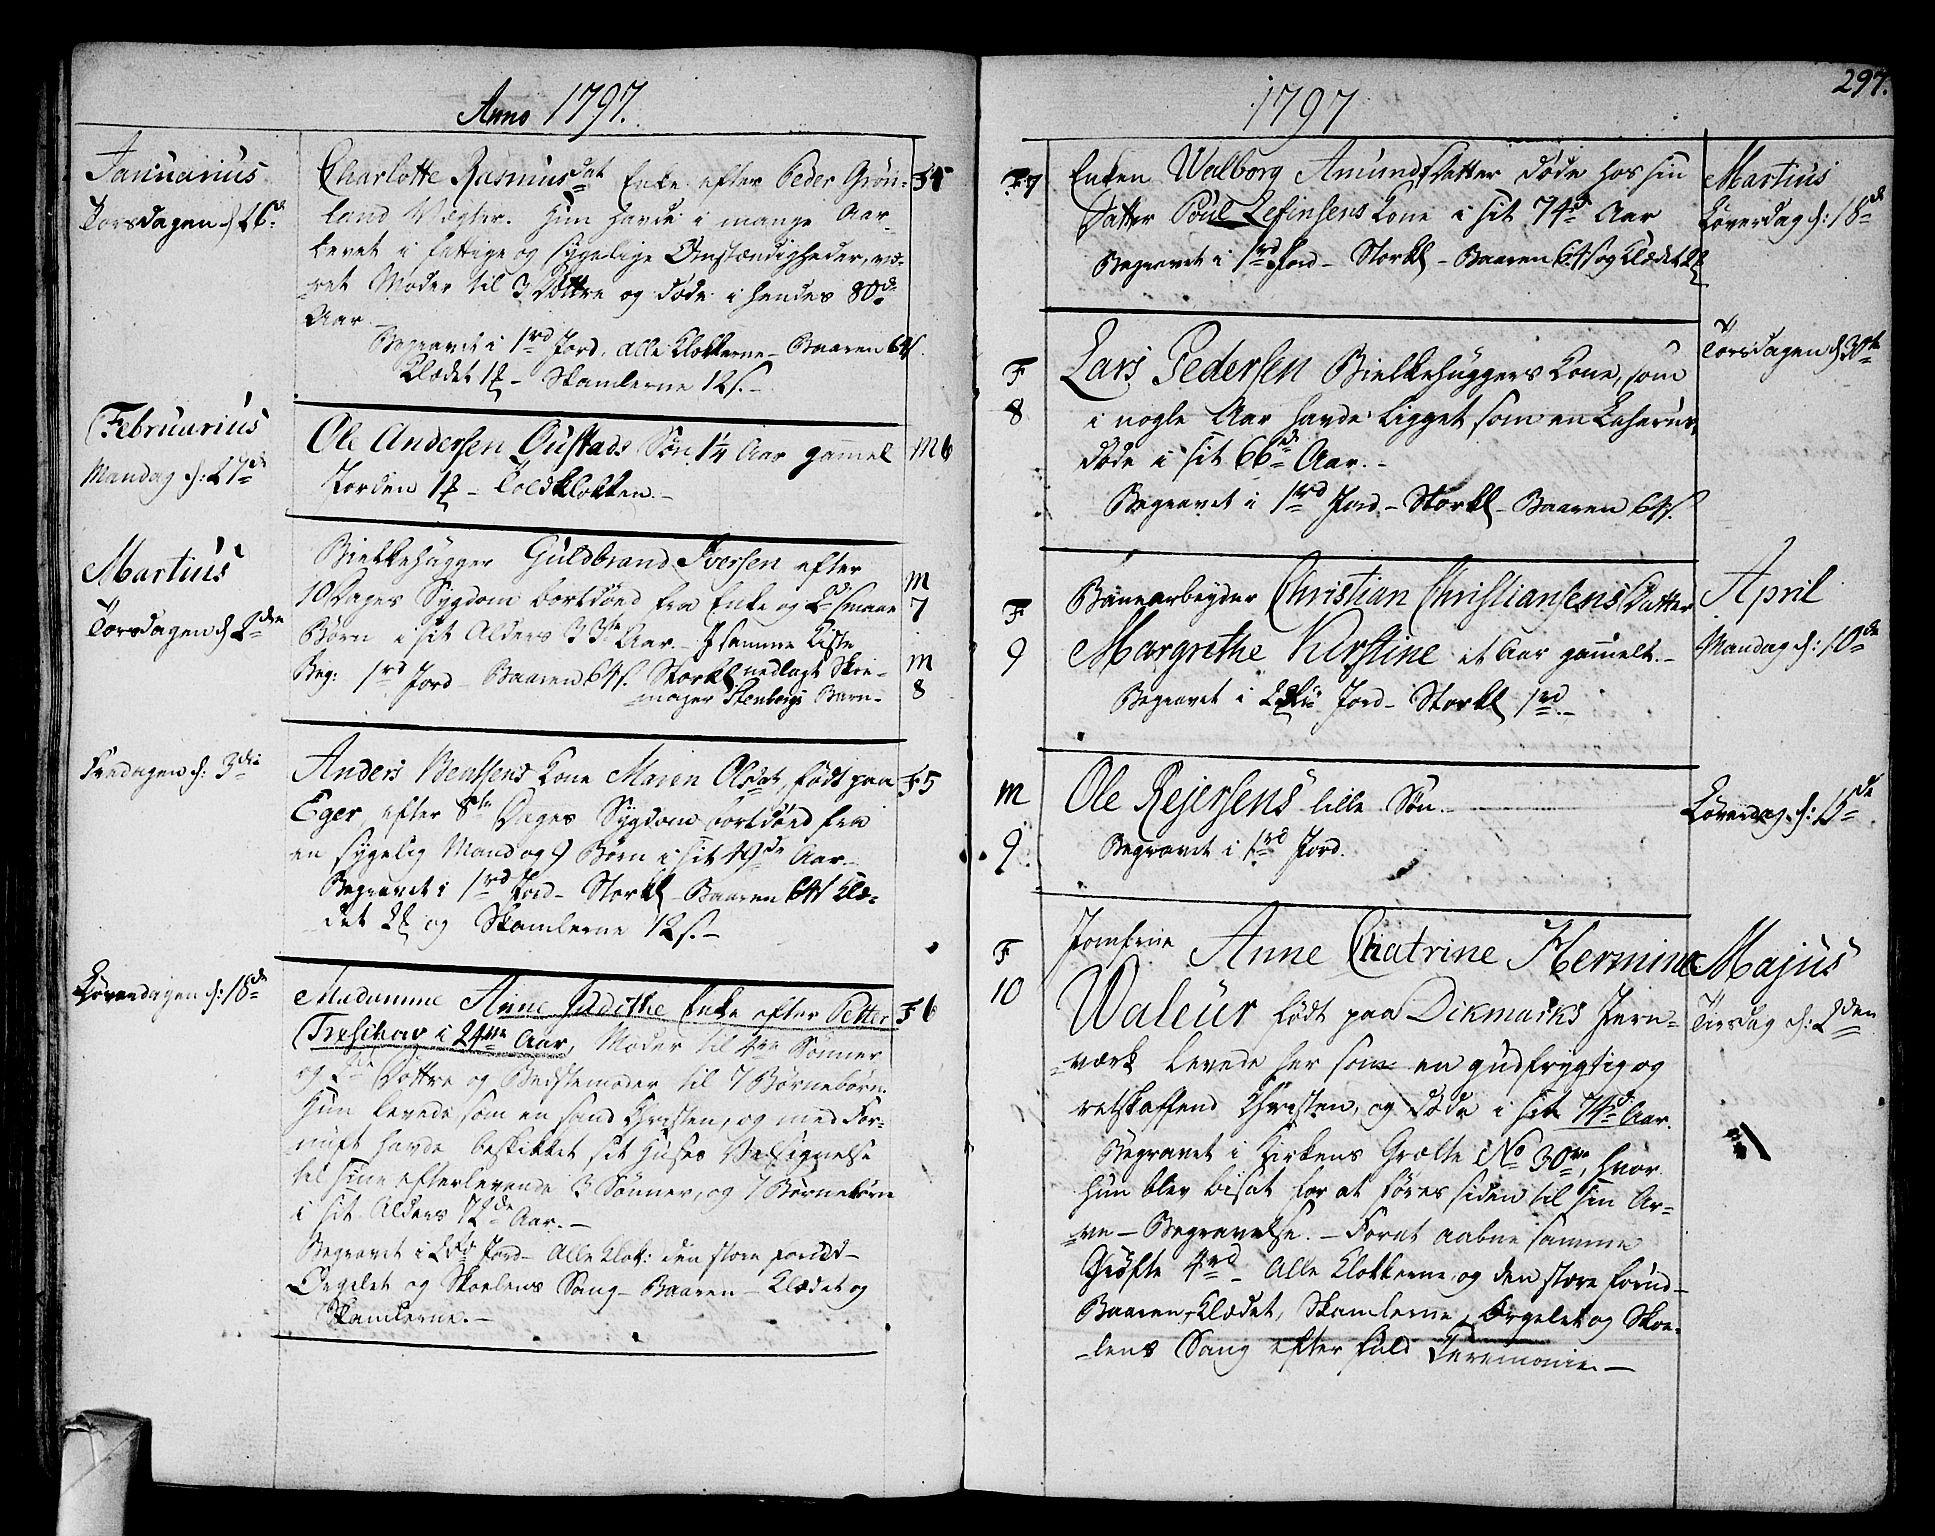 Anno 1797.
Januarius
Torsdagen d. 26de
Charlotte Rasmusdat Enke efter Peder Grön-
land Vægter. Hun havde i mange Aar
levet i fattige og sygelige Omstændigheder, væ-
ret Moder til 3 Döttre og döde i hendes 80de
Aar
Begravet i 1rd Jord. alle Klokkerne - Baaren 64s.
Klædet - Skamlerne 12s. -
F
Februarius
Mandag d: 27de
Ole Andersen Søn 1¼ Aar gammel
Jorden - Toldklokken. -
M 6
Martius
Torsdagen d 2den
Bielkehugger Guldbrand Iversen efter
10 Dages Sygdom bortdöd fra Enke og 2de smaae
Börn i sit Alders 33te Aar. - I samme Kiste
Beg: 1rd Jord - Baaren 64s. Storkl nedlagt Skoe-
mager Stenbergs Barn -
M
7
M
8
Fredagen d: 3die
Anders Bentsens Kone Maren Olsdat, født paa
Eger, efter 8te Dages Sygdom bortdöed fra
en sygelig Mand og Börn i sit Aar -
Begravet i 1rd Jord - Storkl - Baaren 64s Klæ-
det og Skamlerne 12s. -
F 5
Löverdagen d: 18de
Madamme Anne Judithe Enke efter Petter
Treschow i 24 Aar, Moder til 4re Sönner
og Döttre og Bedstemoder til 7 Börnebörn.
Hun levede som en sand Christen, og med For-
nuft havde beskikket sit Huses Velsignelse
til sine efterlevende 3 Sönner, og 7 Börnebörn
i sit Alders 72de Aar. -
Begravet i Jord - Alle Klok: den store forud -
Orgelet og Skoelens Sang - Baaren - Klædet og
Skamlerne. -
F 6
1797
297.
F 7
Enken Walborg Amundsdatter döde hos sin
Datter Poul Kone i sit 74de Aar
Begravet i 1rd Jord - Storkl - Baaren 64s og Klædet
Martius
Löverdag d: 18de
F
8
Lars Pedersen Bielkehuggers Kone, som
i nogle Aar havde ligget som en Lazarus,
döde i sit 66de Aar. -
Begravet i 1rd Jord - Storkl - Baaren 64s.
Torsdagen d 30te
F
9
Christian Christiansens Datter
Margrethe Kirstine et Aar gammelt. -
Begravet i Jord - Storkl 1rd. -
April
Mandag d: 10de
M
9.
Ole Rejersens lille Søn
Begravet i 1rd Jord.
Löverdag d: 15de
F
10
Jomfrue Anne Chatrine Hermine
Waleur født paa Dikmarks Jern-
værk levede her som en gudfrygtig og
retskaffend Christen, og döde i sit 74de Aar.
Begravet i Kirkens Grøfte No 30ve, hvor
hun blev bisat for at føres siden til sin Ar-
ve - Begravelse. - Forat aabne samme
Gröfte 4rd - Alle Klokkerne og den store forud -
Baaren, Klædet, Skamlerne, Orgelet og Skoe-
lens Sang efter fuld Ceremonie. -
Majus
Tirsdag d: 2den